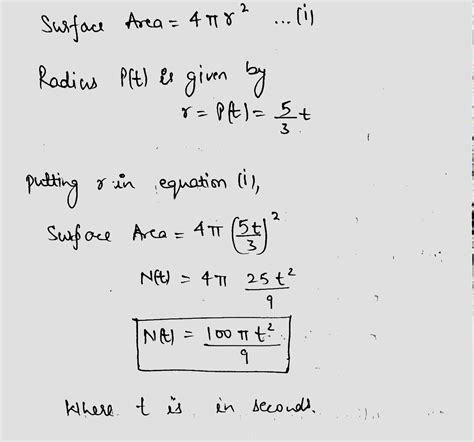 Surface Area = 4πr² ...(i)
Radius P(t) is given by
r = P(t) = 5/3 t
putting r in equation (i),
Surface Area = 4π (5t/3)²
N(t) = 4π 25t²/9
N(t) = 100πt²/9
Where t is in seconds.